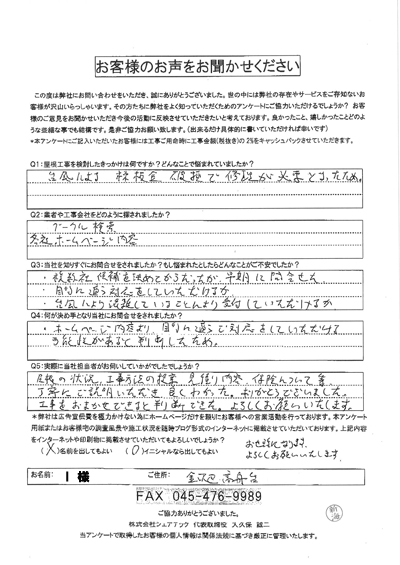 お客様のお声をお聞かせください
この度は弊社にお問い合わせをいただき、誠にありがとうございました。世の中には弊社の存在やサービスをご存知ないお
客様が沢山いらっしゃいます。その方たちに弊社をよく知っていただくためのアンケートにご協力いただけるでしょうか？ お客
様のご意見をお聞かせいただき今後の活動に反映させていただきたいと考えております。良かったこと、嬉しかったことどのよ
うな些細な事でも結構です。是非ご協力お願い致します。(出来るだけ具体的に書いていただければ幸いです)
*本アンケートにご記入いただいたお客様には工事ご用命時に工事金額(税抜き)の2%をキャッシュバックさせていただきます。
Q1：屋根工事を検討したきっかけは何ですか？どんなことで悩まれていましたか？
台風により 棟板金 破損で修理が必要となったため。
Q2：業者や工事会社をどのように探されましたか？
グーグル検索
各社ホームページ内容
Q3：当社を知りすぐにお問合せをされましたか？もし悩まれたとしたらどんなことがご不安でしたか？
・複数社 候補を決めてからだったが、早期に問合せた
・目的に適う対応をしていただけるか
・台風により混雑していることより受付していただけるか
Q4：何が決め手となり当社にお問合せをされましたか？
・ホームページ内容より、目的に適う対応をしていただける
可能性があると判断したため。
Q5：実際に当社担当者がお伺いしていかがでしたでしょうか？
屋根の状況、工事方法の提案、見積り内容、保険について等
丁寧にご説明いただき良くわかった。ありがとうございました。
工事をおまかせできると判断できた。よろしくお願いいたします。
*弊社は広告宣伝費を極力かけない為にホームページだけを頼りにお客様への営業活動を行っております。本アンケート
用紙またはお客様宅の調査風景や施工状況を随時ブログ形式のインターネットに掲載させていただいております。上記内容
をインターネットや印刷物に掲載させていただいてもよろしいでしょうか？
(X)名前を出してもよい (O)イニシャルなら出してもよい
お世話になります。
よろしくお願いいたします
お名前： I 様
FAX 045-476-9989
ご協力ありがとうございました。
株式会社シェアテック 代表取締役 大久保 誠二
当アンケートで取得したお客様の個人情報は関係法規に基づき厳正に管理いたします。